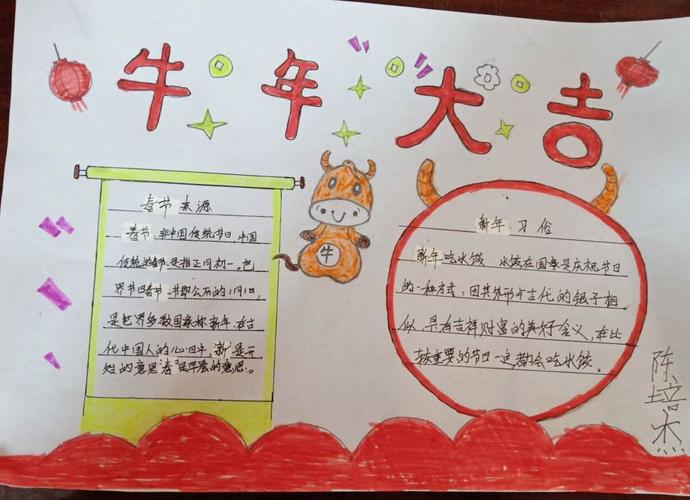 牛年大吉
春节来源
春节,非中国传统节日,中国
传统春节是指正月初一。把
界节日春节一节即公历的1月1日,
是世界多数国家称新年,在古
代中国人的心中,新是开
姓的意思春里早晨的意思。
牛
新年习俗
新年吃水饺 水饺在国家是庆祝节日
的一种方式,因其外形与古代的银子相
似,具有吉祥财富的美好含义,在比
较重要的节日一定都会吃水饺。
陈培杰